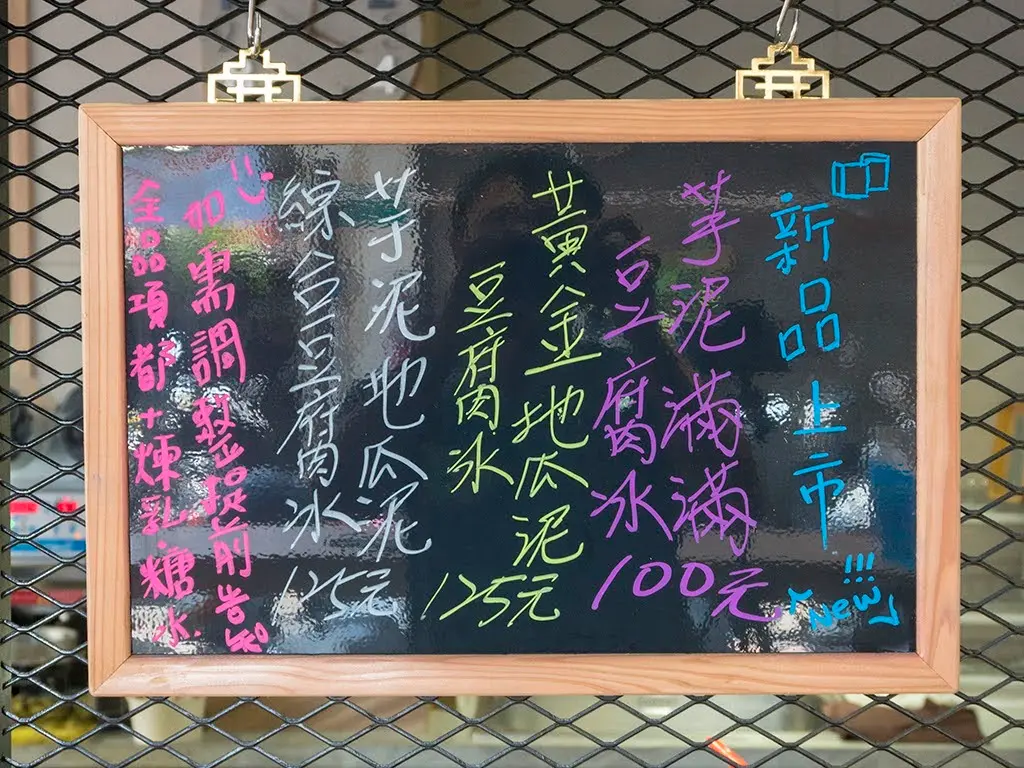 新品上市!!!
New
芋泥滿滿
豆腐冰
100元
黃金地瓜泥
豆腐冰
125元
芋泥地瓜泥
綜合豆腐冰
125元
全品項都+煉乳糖水.
如需調整提前告知